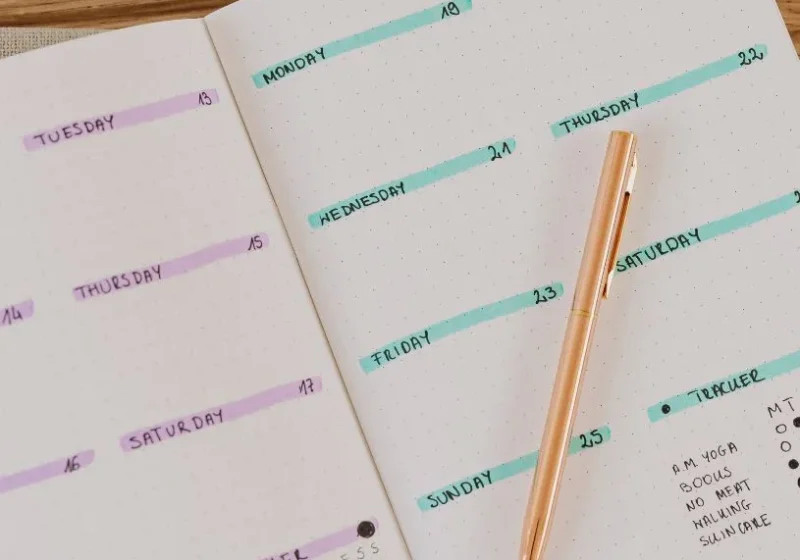 TUESDAY 13
14
THURSDAY 15
16
SATURDAY 17
S S
MONDAY 19
WEDNESDAY 21
THURSDAY 22
FRIDAY 23
SATURDAY
SUNDAY 25
TRACKER
M T
A.M. YOGA
BOOKS
NO MEAT
WALKING
SKINCARE